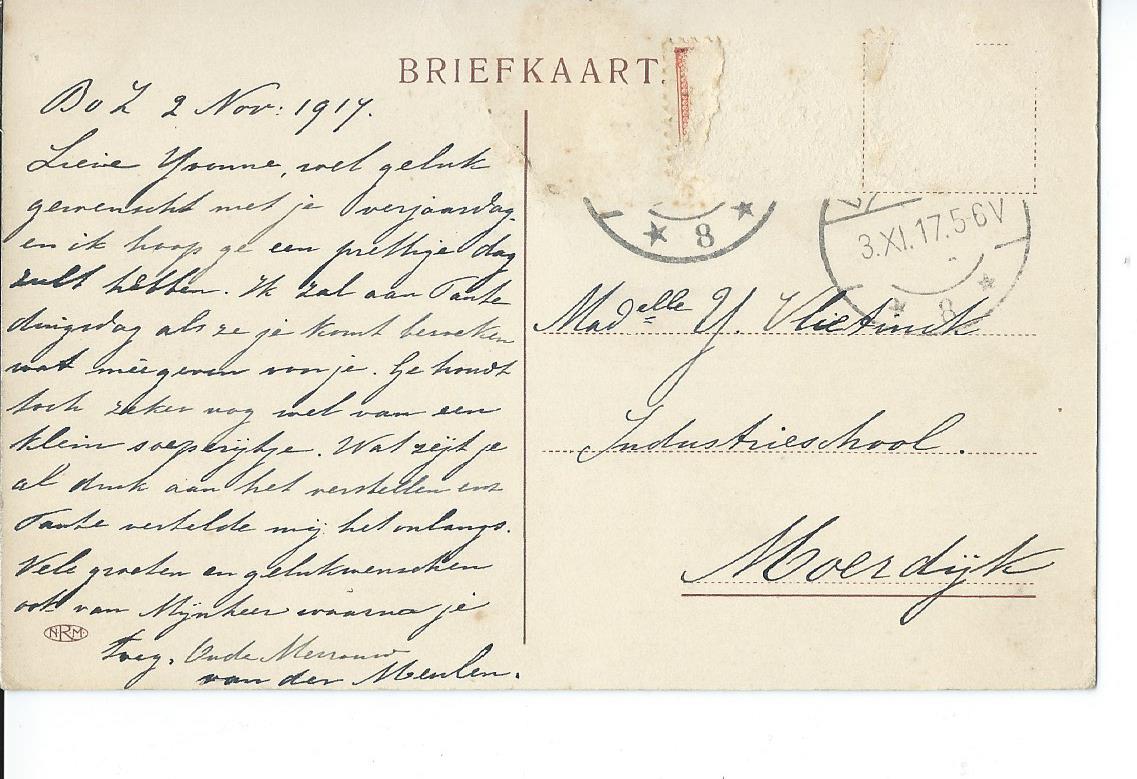 BRIEFKAART.
BoZ 2 Nov: 1917.
Lieve Yvonne, wel geluk
gewenscht met je verjaardag
en ik hoop ge een prettige dag
zult hebben. Ik zal aan Tante
dingsdag als ze je komt bezoeken
wat meegeven voor je. Ge houdt
toch zeker nog wel van een
klein snoeperijtje. Wat zijt je
al druk aan het verstellen
Tante vertelde mij het onlangs.
Vele groeten en gelukwenschen
ook van Mijnheer waarna je
toeg. Oude Mevrouw
van der Meulen.
NRM
8
3.XI.17.5-6V
8
Madelle Y. Vlietinck
Industrieschool.
Moerdijk